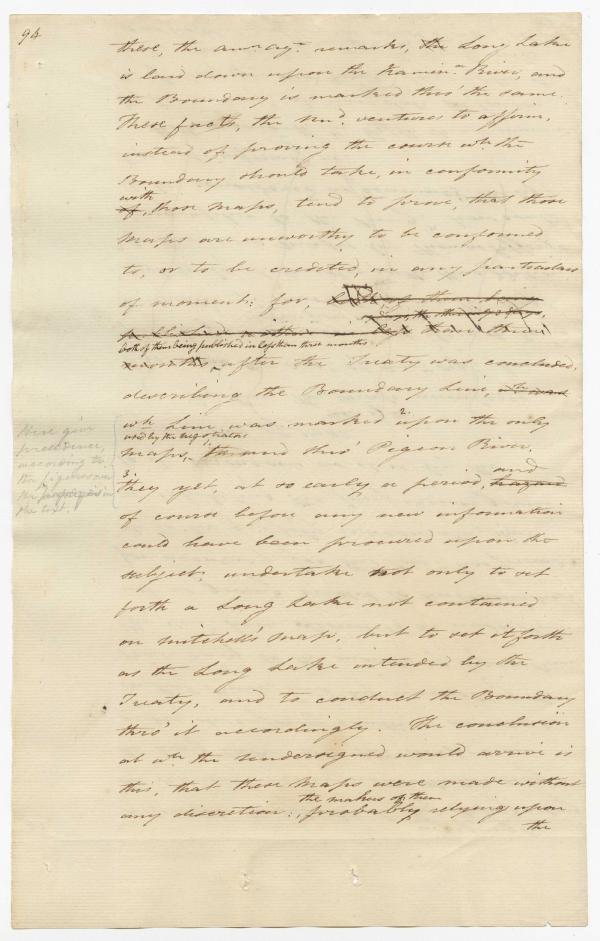 94
these, the amn agt remarks, the Long Lake
is laid down upon the Kaminn River, and
the Boundary is marked thro' the same.
These facts, the Undd ventures to affirm,
instead of proving the course wh the
Boundary should take, in conformity
with
of, those Maps, tend to prove, that those
Maps are unworthy to be conformed
to, or to be credited, in any particulars
of moment: for, both of them being
published
both of them being published in less than three months
months after the Treaty was concluded,
describing the Boundary Line,
wh Line was marked 2 upon the only
used by the negotiators
Maps, to and thro' Pigeon River,
3
they yet, at so early a period, and
hazard
of course before any new information
could have been procured upon the
subject, undertake not only to set
forth a Long Lake not contained
on Mitchell's Map, but to set it forth
as the Long Lake intended by the
Treaty, and to conduct the Boundary
thro' it accordingly. The conclusion
at wh the Undersigned would arrive is
this, that these Maps were made without
the makers of them
any discretion; probably relying upon
the
Here give
precedence,
according to
the figures in
the
the text.